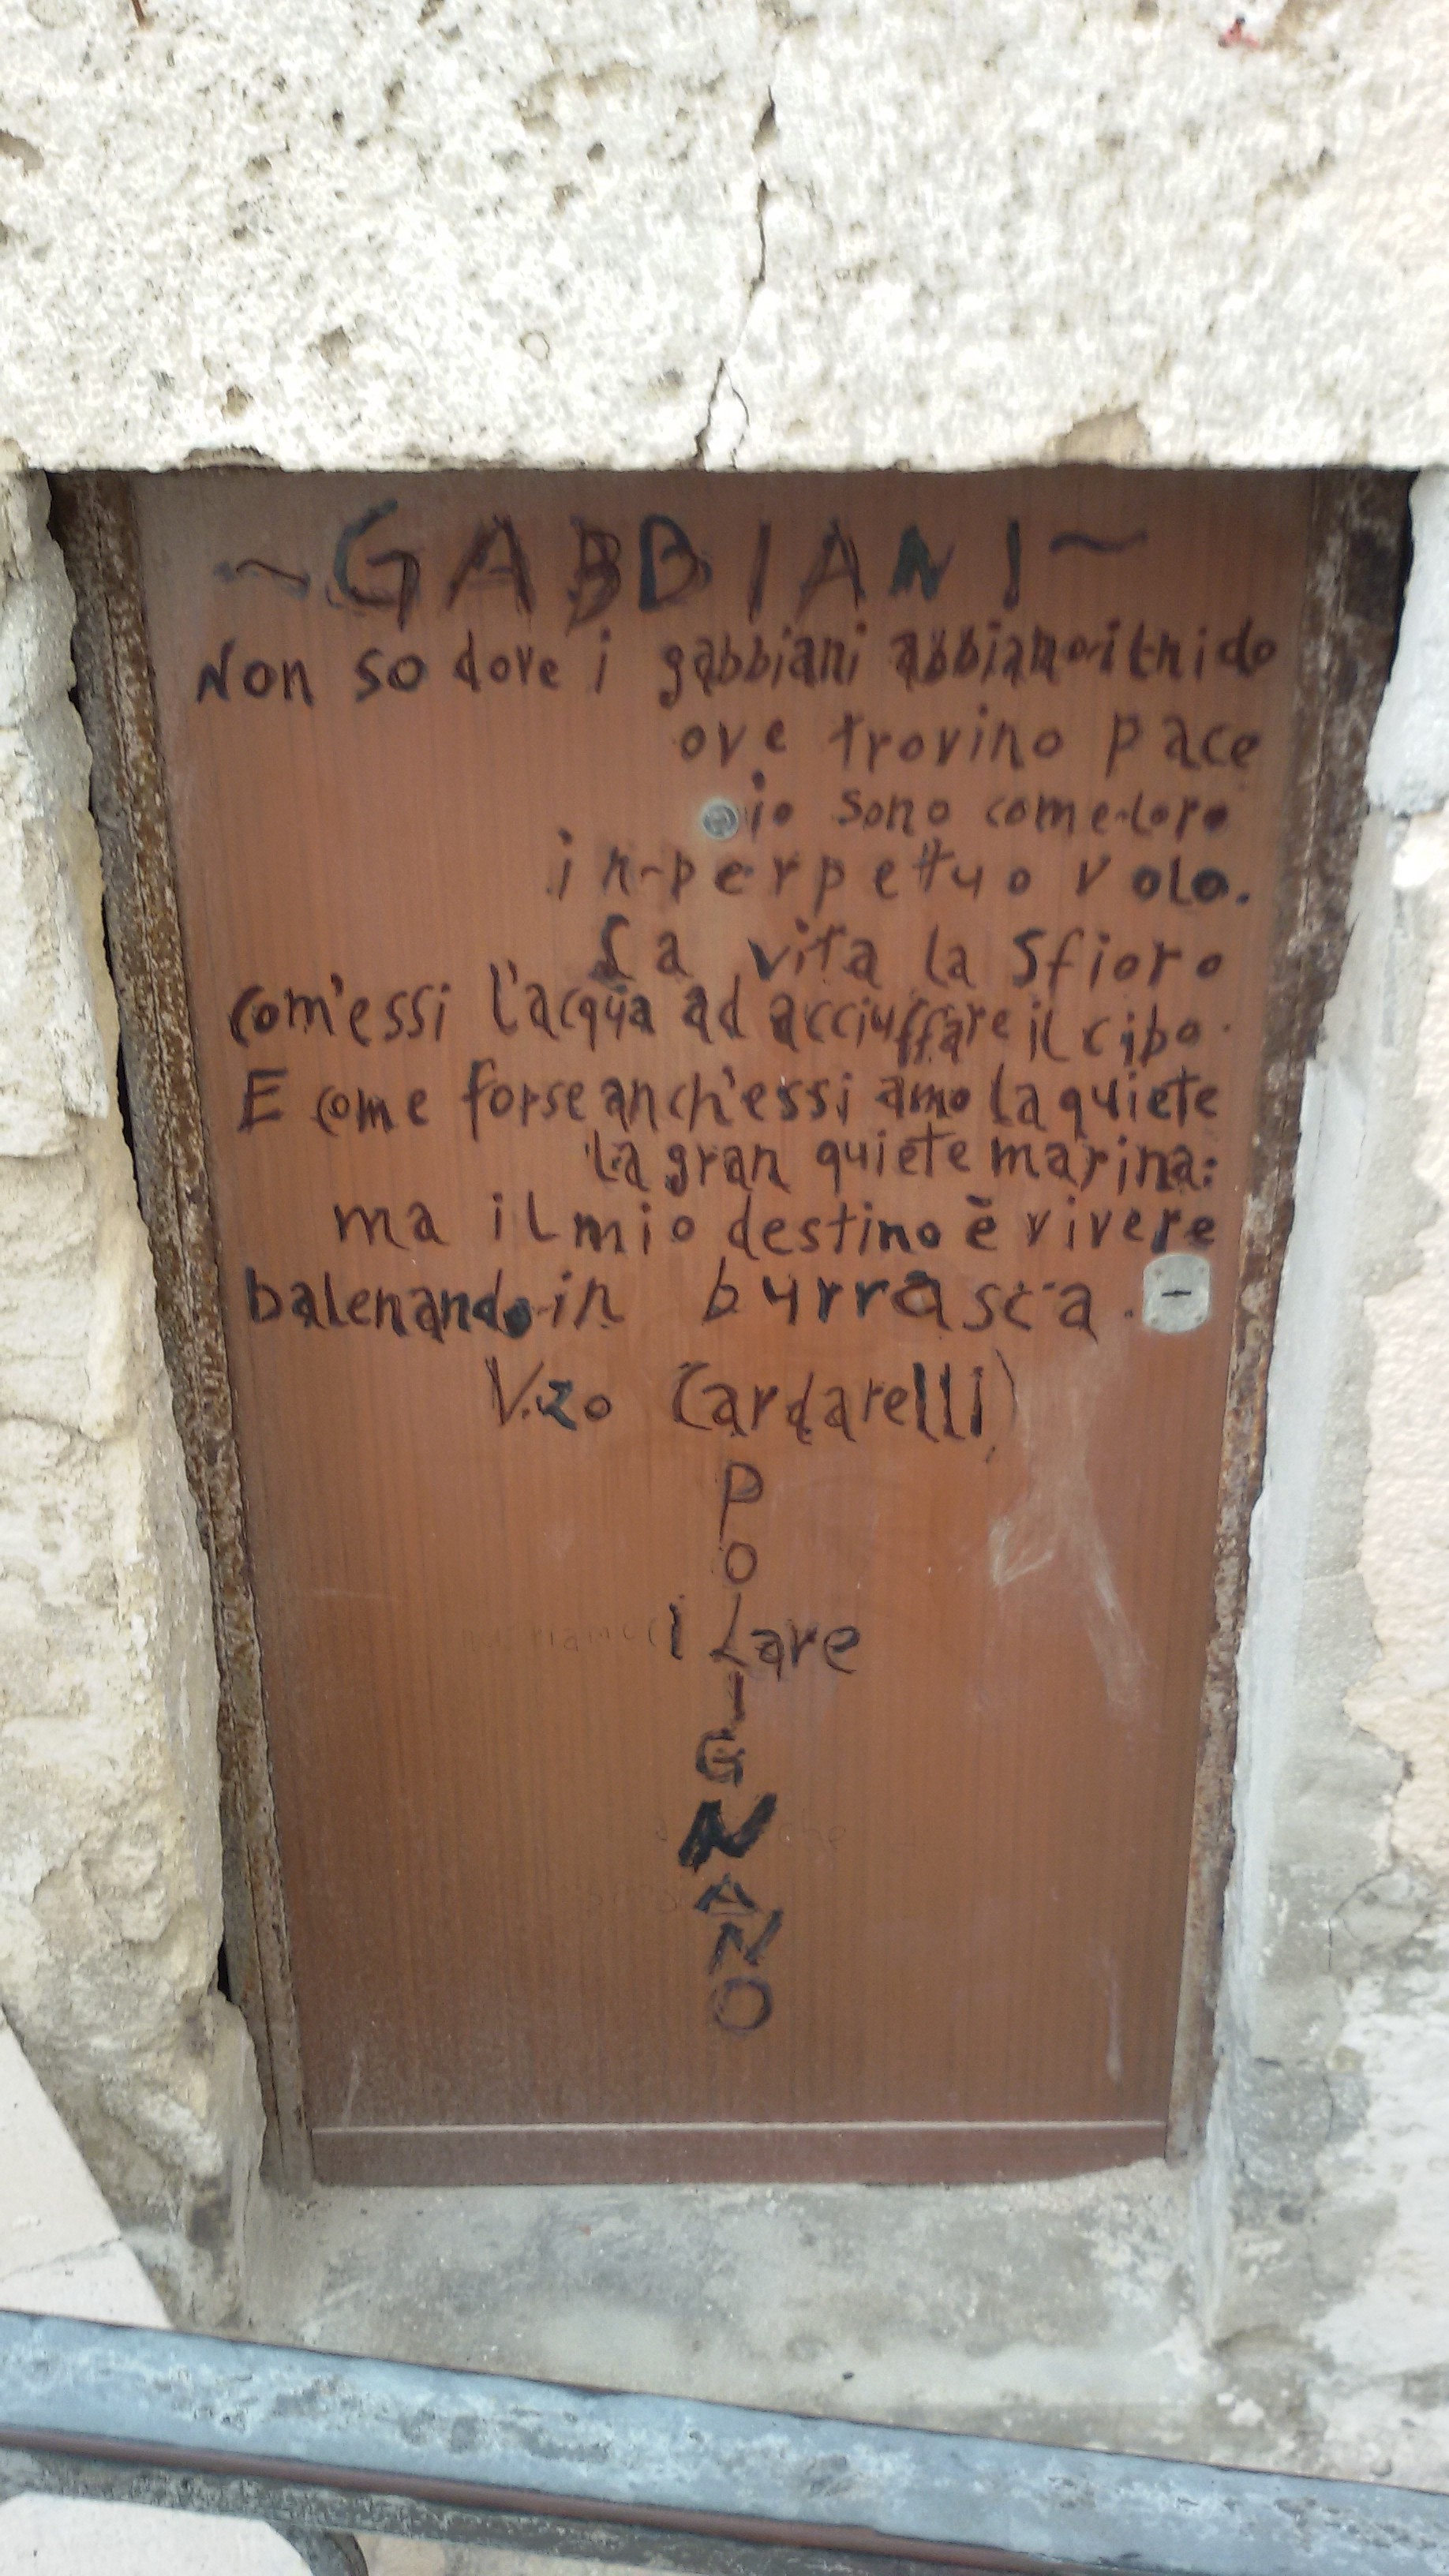 ~GABBIANI~
Non so dove i gabbiani abbiano il nido
ove trovino pace
io sono come loro
in perpetuo volo.
La vita la sfioro
com'essi l'acqua ad acciuffare il cibo.
E come forse anch'essi amo la quiete
la gran quiete marina:
ma il mio destino è vivere
balenando in burrasca.
V.zo Cardarelli)
P
O
i Lare
I
G
N
A
N
O